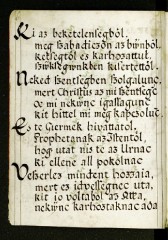 Ki az beketelensegböl,
meg Szabadiczon az bünböl,
ketsegtöl es karhozattul,
Szüksegünkben kisertettöl.
Neked Szentsegben Szolgalunc,
mert Christus az mi Szentsege
öc mi nekünc igassagunc
kit hittel mi meg kapcsoluc.
Es te Giermek hivattatol
Prophetanak az Istentöl
hogy utat nis te az Urnac
ki ellene all pokolnac
Veherlez mindent hozzaia,
mert ez idvessegnec uta,
kit io voltabol az Atta,
nekünc karhoztaknac ada